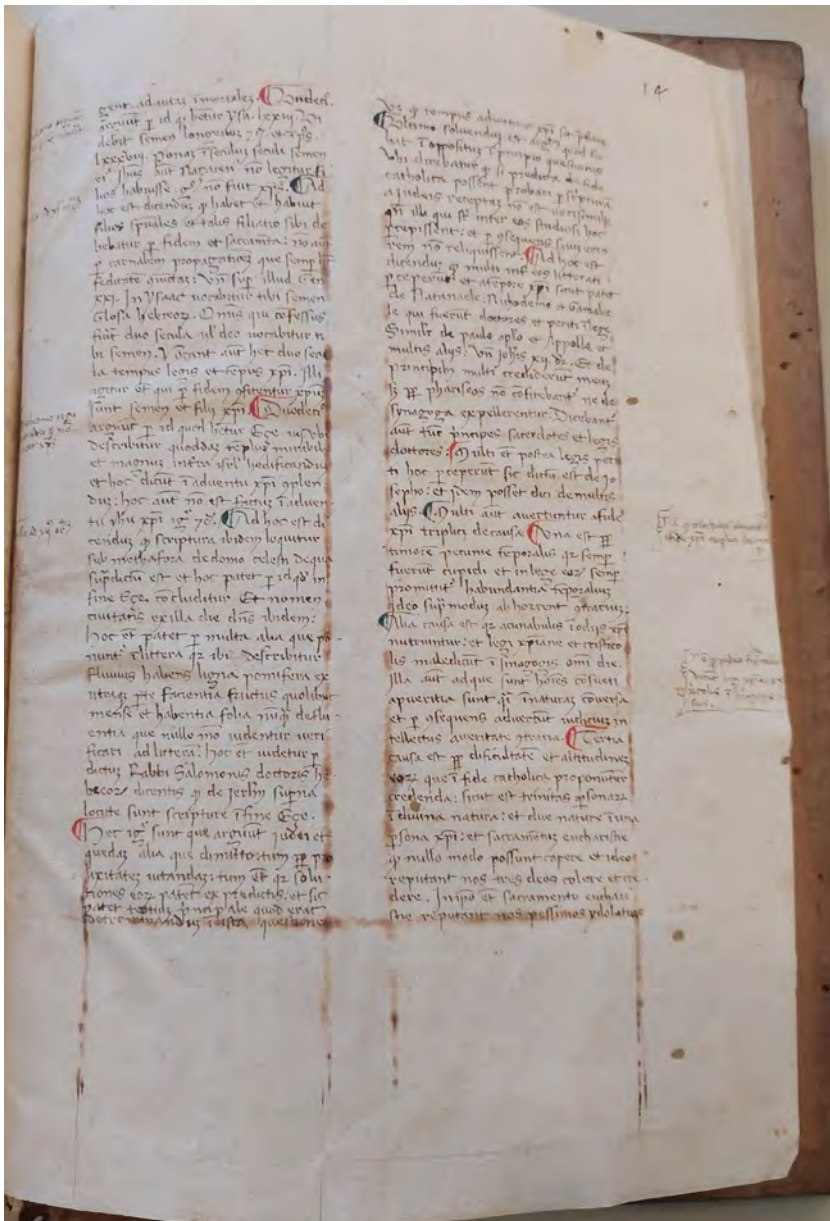 14
gent. ad uitaz īmortalez. Undeci.
arguūt p id qd hetur ysa. lxxiii. Vi
debit semen longeuum 7c̄. et ps.
lxxxviii. Ponaz ī seculuz seculi semen
ei9. Ihūs aūt Nazaren9 nō legitur fi
lios habuisse. g° nō fuit xp̄s. Ad
hoc est dicenduz q habet et habuit
filios spūales et talis filiatio sibi de
bebitur p fidem et sacramēta: nō aūt
p carnalem propagationez que semp hȝ
feditatē quādaz. Vn̄ sup illud Gen̄
xxi. In ysaac uocabitur tibi semen
Glosa hebreoz. Omnis qui confessus
fuit̄ duo secula
bi semen. Vocant aūt hec duo secu
la tempus legis et tēpus xpi. Illi
igitur et̄ qui p fidem 9fitentur xpūm
sunt semen et filii xpi. Duodeci°
arguūt p id quod hētur Eçe. ubi
describitur quoddaz tēpluz mirabile
et magnuz infra isrl hedificanduz
et hoc dicūt ī aduentu xpi 9plen
duz: hoc aūt nō est factuz ī aduen
tu ihū xpi igr̄ 7c̄. Ad hoc est di
cenduz q scriptura ibidem loquitur
sub methafora de domo celesti de qua
supdictū est et hoc patet p id qd in
fine Eçe. concluditur Et nomen
ciuitatis ex illa die dn̄s ibidem:
hoc et̄ patet p multa alia que po
nunt̄ ī littera qr ibi describitur
fluuius habens ligna pomifera ex
utraqz pte facientia fructus quolibet
mense et habentia folia nūqz deflu
entia que nullo mō uidentur ueri
ficari ad litterā. hoc et̄ uidetur p
dictuz Rabbi Salomonis doctoris he
breoz dicentis q de Jerlm superna
locute sunt scripture ī fine Eçe.
Hec igr̄ sunt que arguūt iudei et
quedaz alia que dimitto: tum pp pro
lixitatez uitandaz: tum et̄ qr solu
tiones eoz patent ex predictis. et sic
patet totum principale quod erat
determinanduz ī ista questione
q tempus aduentus xpi sit
Ultimo soluenduz est
ī oppositum ī principio questionis
Ubi dicebatur q si predicta de fide
catholica possent probari p scripturas
a iudeis receptas nō est uerisimile
qn̄ illi qui st̄ inter eos studiosi hoc
pcepissent: et p 9sequens suum erro
rem nō reliquissent. Ad hoc est
dicenduz q multi int̄ eos litterati
pceperūt et a tēpore xpi sicut patet
de Natanaele. Nichodemo et Gamalie
le qui fuerūt doctores et periti ī lege
Similr̄ de paulo aplo et Appollo. et
multis alijs. Vn̄ Johīs xij. dr̄. Et de
principibz multi crediderūt in eum
sȝ pp phariseos nō cōfitebant̄ ne de
synagoga expellerentur. Dicebant̄
aūt tūc principes sacerdotes et legis
doctores: Multi et̄ postea legis peri
ti hoc pceperūt sic dictū est de io
sepho: et idem posset dici de multis
alijs. Multi aūt auertuntur a fide
xpi triplici de causa Una est pp
timore penurie tēporalis qr semp
fuerūt cupidi et in lege eoz semp
promittit̄ habundantia tēporaliuz
ideo sup moduz abhorrent 9trariuz.
Alia causa est qr a cunabulis ī odijs xpi
nutriuntur: et legi xpiane et cristico
lis maledicūt ī sinagogis omni die.
Illa aūt ad que sunt hoīes cōsueti
a pueritia sunt qi ī naturaz conuersa
et p 9sequens aduertūt iudiciuz in
tellectus a ueritate 9traria. Tertia
causa est pp dificultatē et altitudinez
eoz que ī fide catholica proponuntur
credenda: sicut est trinitas psonarz
ī diuina natura: et due nature ī una
psona xpi: et sacramētuz eucharistie
q nullo modo possunt capere et ideo
reputant nos tres deos colere et cre
dere. In ipo et̄ sacramento euchari
stie reputant nos pessimos ydolatras